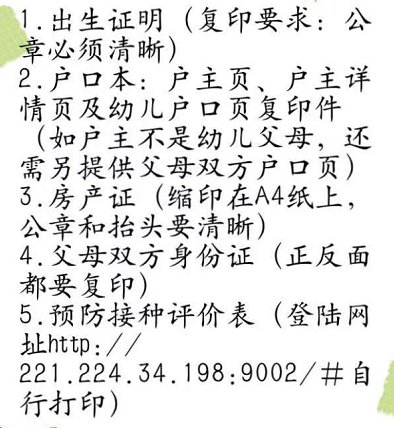 1.出生证明（复印要求：公
章必须清晰）
2.户口本：户主页、户主详
情页及幼儿户口页复印件
（如户主不是幼儿父母，还
需另提供父母双方户口页）
3.房产证（缩印在A4纸上，
公章和抬头要清晰）
4.父母双方身份证（正反面
都要复印）
5.预防接种评价表（登陆网
址http://
221.224.34.198:9002/#自
行打印）